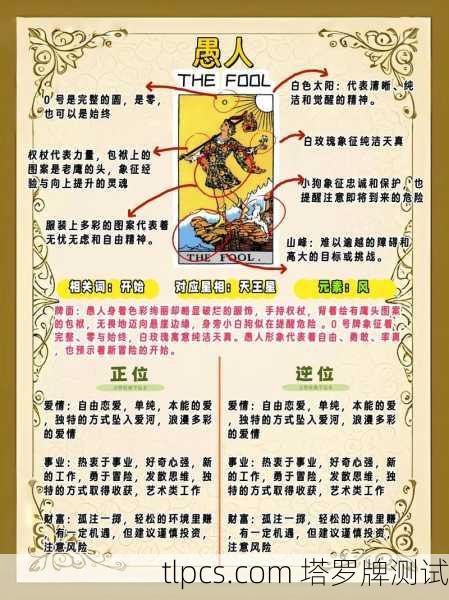 愚人
THE FOOL
0 号是完整的圆，是零，
也可以是始终
权杖代表力量，包袱上的
图案是老鹰的头，象征经
验与向上提升的灵魂
服装上多彩的图案代表着
无忧无虑和自由精神。
白色太阳：代表清晰、纯
洁和觉醒的精神。
白玫瑰象征纯洁天真
小狗象征忠诚和保护，也
提醒注意即将到来的危险
山峰：难以逾越的障碍和
高大的目标或挑战。
0
THE FOOL.
相关词：开始
对应星相：天王星
元素：风
牌面：愚人身着色彩绚丽却略显破烂的服饰，手持权杖，背着绘有鹰头图案
的包袱，无畏地迈向悬崖边缘，身旁小白狗似在提醒危险 。0 号牌象征着
完整、零与始终，白玫瑰寓意纯洁天真。愚人形象代表着自由、勇敢、率真
，也预示着新冒险的开始。
正位
爱情：自由恋爱，单纯，本能的爱
，独特的方式坠入爱河，浪漫多彩
的爱情
事业：热衷于事业，好奇心强，新
的工作，勇于冒险，发散思维，独
特的方式取得收获，艺术类工作
财富：孤注一掷，轻松的环境里赚
，有一定机遇，但建议谨慎投资，
注意风险
逆位
爱情：自由恋爱，单纯，本能的爱
，独特的方式坠入爱河，浪漫多彩
的爱情
事业：热衷于事业，好奇心强，新
的工作，勇于冒险，发散思维，独
特的方式取得收获，艺术类工作
财富：孤注一掷，轻松的环境里赚
，有一定机遇，但建议谨慎投资，
注意风险
tlpcs.com 塔罗牌测试